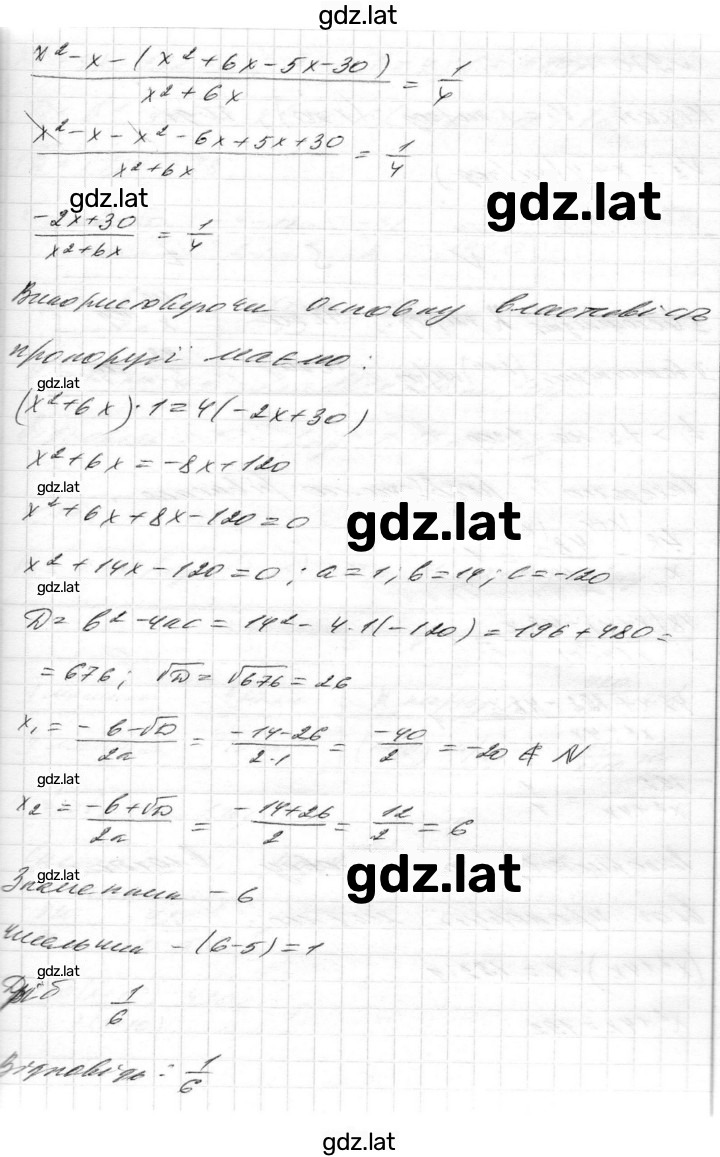 gdz.lat
x² - x - (x² + 6x - 5x - 30) / x² + 6x = 1/4
x² - x - x² - 6x + 5x + 30 / x² + 6x = 1/4
gdz.lat
gdz.lat
-2x + 30 / x² + 6x = 1/4
Використовуючи основну властивість
пропорції маємо:
gdz.lat
(x² + 6x)·1 = 4(-2x + 30)
x² + 6x = -8x + 120
gdz.lat
x² + 6x + 8x - 120 = 0
gdz.lat
x² + 14x - 120 = 0; a = 1; b = 14; c = -120
gdz.lat
D = b² - 4ac = 14² - 4·1(-120) = 196 + 480 =
= 676; √D = √676 = 26
x₁ = -b - √D / 2a = -14 - 26 / 2·1 = -40/2 = -20 ∉ N
gdz.lat
x₂ = -b + √D / 2a = -14 + 26 / 2 = 12/2 = 6
gdz.lat
gdz.lat
Знаменник - 6
чисельник - (6-5) = 1
gdz.lat
Дріб 1/6
Відповідь: 1/6
gdz.lat